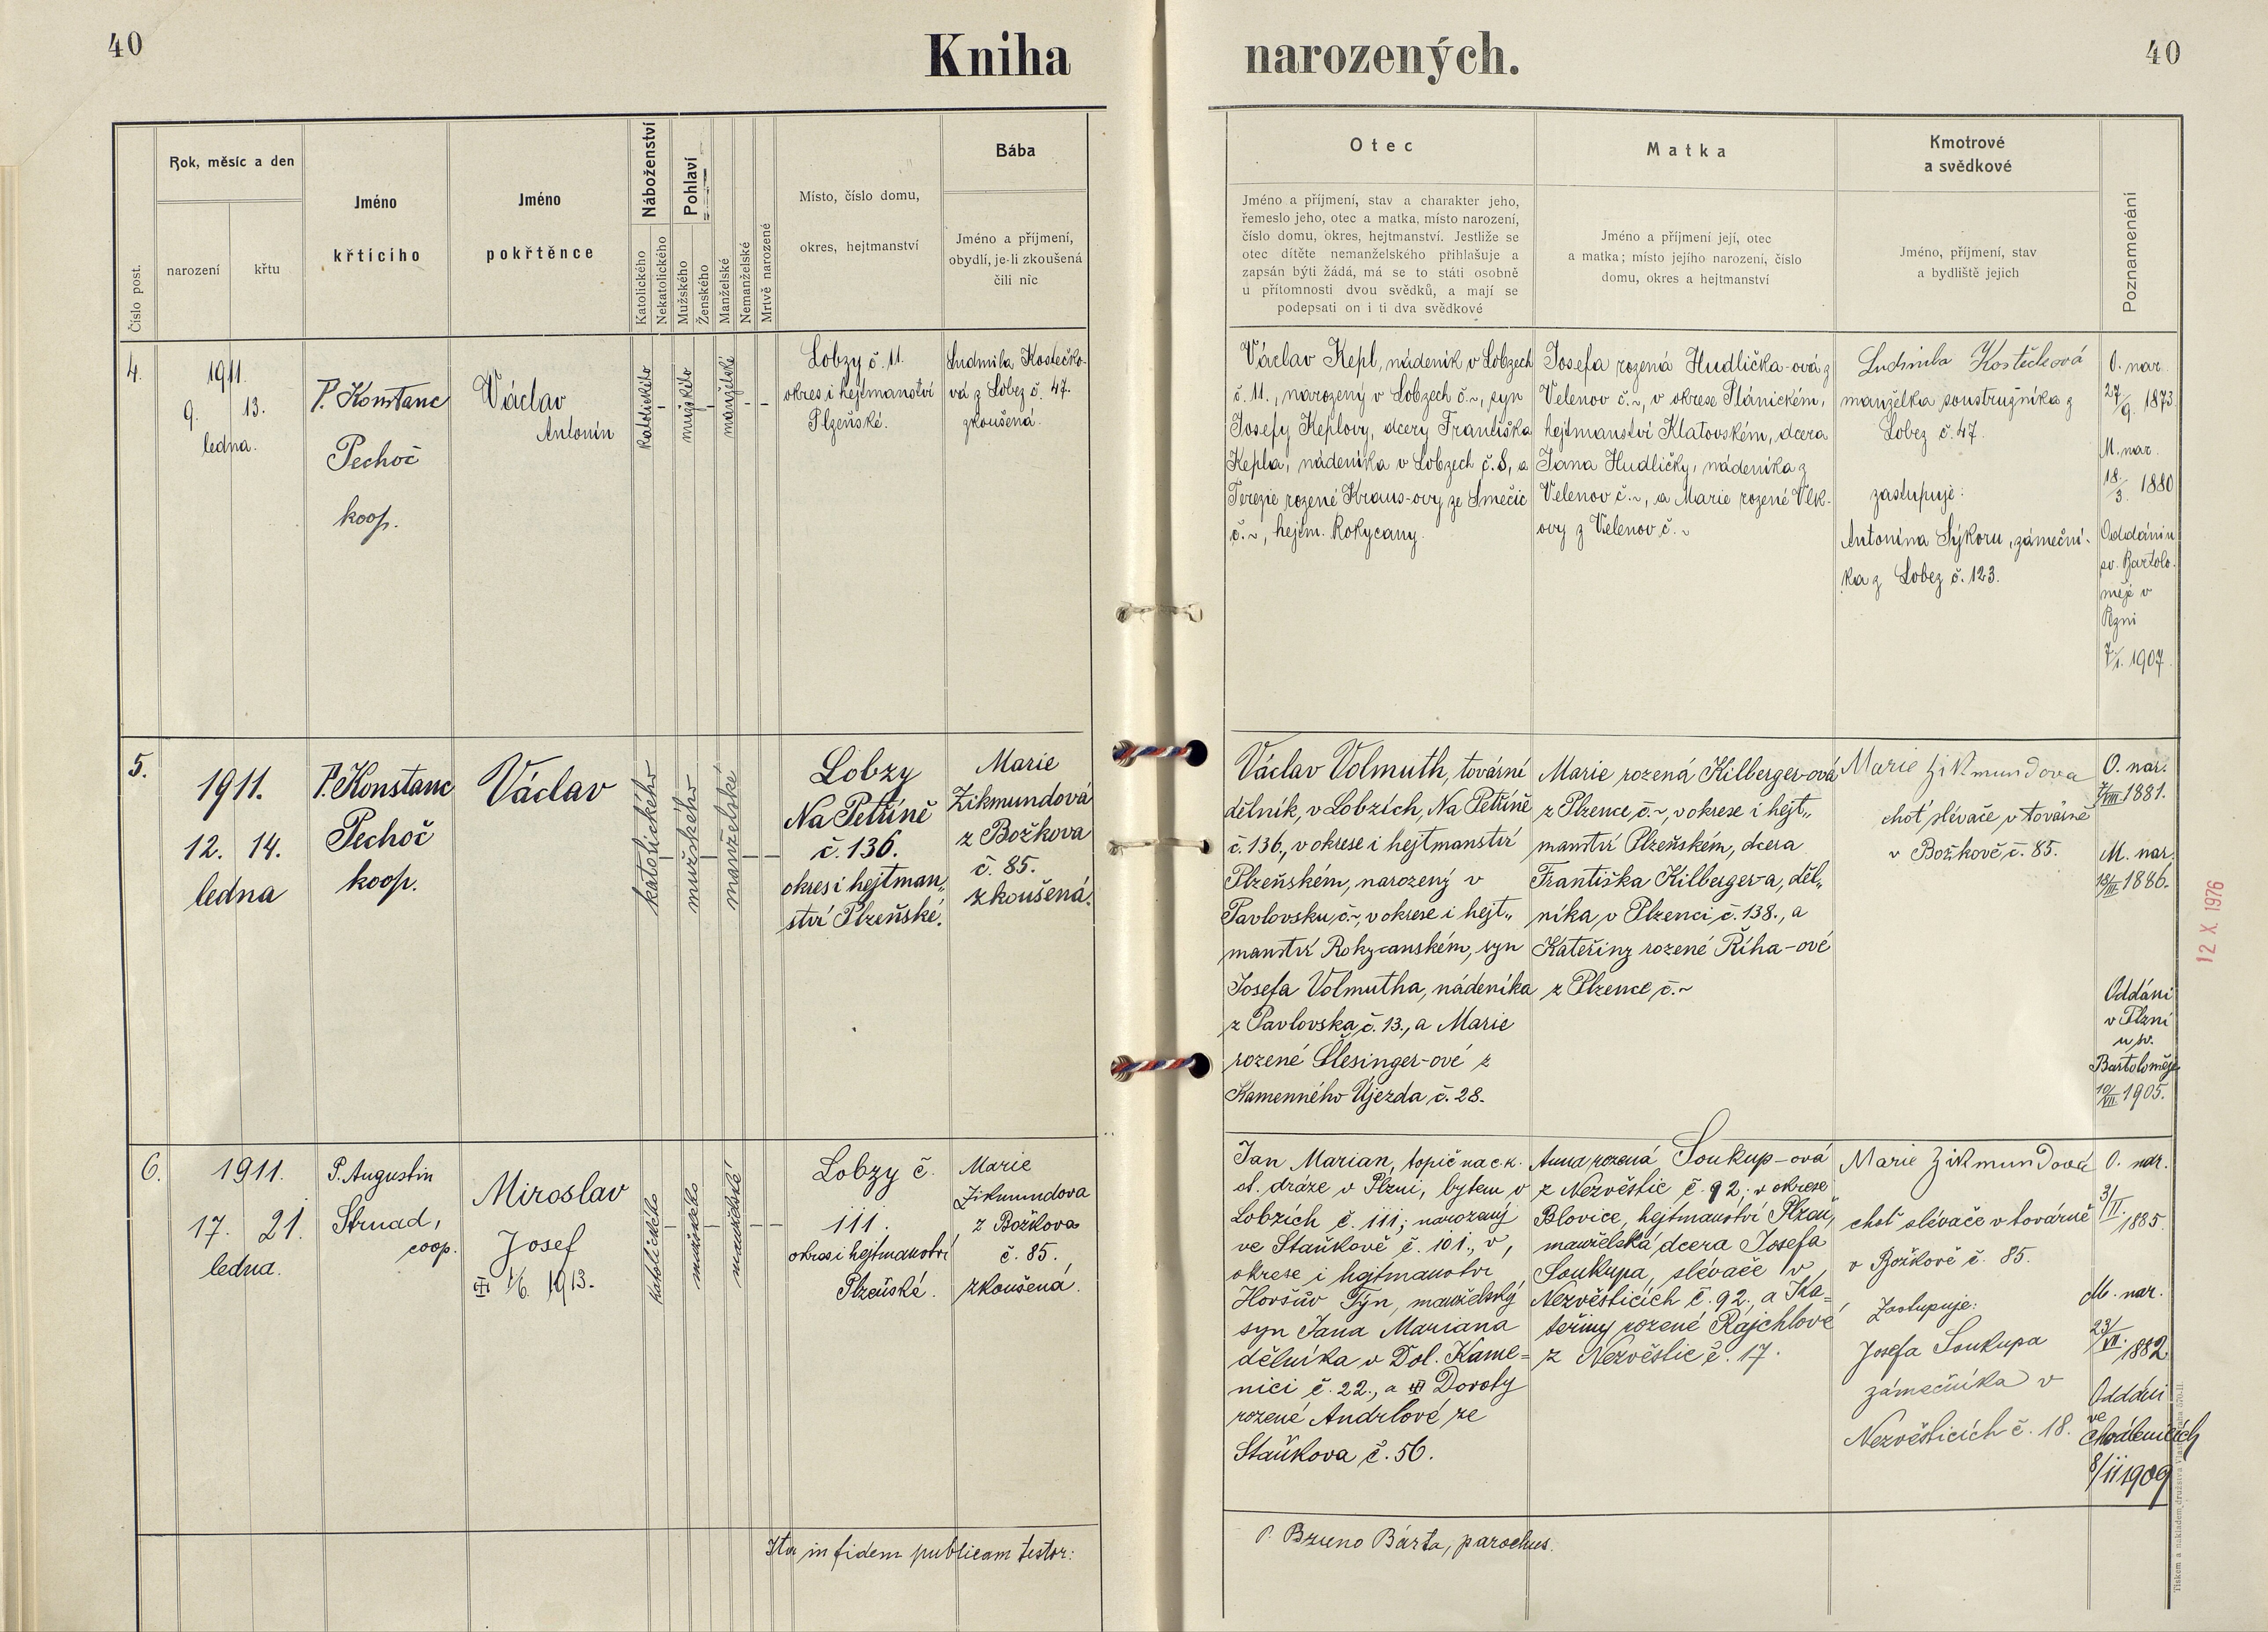 40
Kniha narozených.
40
Číslo post.
Rok, měsíc a den
narození
křtu
Jméno
křticího
Jméno
pokřtěnce
Náboženství
Katolického
Nekatolického
Pohlaví
Mužského
Ženského
Manželské
Nemanželské
Mrtvě narozené
Místo, číslo domu,
okres, hejtmanství
Bába
Jméno a příjmení,
obydlí, je-li zkoušená
čili nic
Otec
Jméno a příjmení, stav a charakter jeho,
řemeslo jeho, otec a matka, místo narození,
číslo domu, okres, hejtmanství. Jestliže se
otec dítěte nemanželského přihlašuje a
zapsán býti žádá, má se to státi osobně
u přítomnosti dvou svědků, a mají se
podepsati on i ti dva svědkové
Matka
Jméno a příjmení její, otec
a matka; místo jejího narození, číslo
domu, okres a hejtmanství
Kmotrové
a svědkové
Jméno, příjmení, stav
a bydliště jejich
Poznamenání
4.
1911.
9. 13.
ledna.
P. Konstanc
Pechoč
koop.
Václav
Antonín
katolického
mužského
manželské
Lobzy č. 11.
okres i hejtmanství
Plzeňské.
Ludmila Kostečko-
vá z Lobez č. 47.
zkoušená.
Václav Kepl, nádeník v Lobzech
č. 11., narozený v Lobzech č. ~, syn
Josefy Keplovy, dcery Františka
Kepla, nádeníka v Lobzech č. 8, a
Terezie rozené Kraus-ovy ze Smečic
č. ~, hejtm. Rokycany.
Josefa rozená Hudlička-ová z
Velenov č. ~, v okrese Plánickém,
hejtmanství Klatovském, dcera
Jana Hudličky, nádeníka z
Velenov č. ~, a Marie rozené Vlk-
ovy z Velenov č. ~
Ludmila Kostečková
manželka soustružníka z
Lobez č. 47.
zastupuje:
Antonína Sýkoru, zámeční-
ka z Lobez č. 123.
O. nar.
27/9. 1873
M. nar.
18/3. 1880
Oddáni u
sv. Bartolo-
měje v
Plzni
7/1. 1907.
5.
1911.
12. 14.
ledna
P. Konstanc
Pechoč
koop.
Václav
katolického
mužského
manželské
Lobzy
Na Petříně
č. 136.
okres i hejtman„
ství Plzeňské.
Marie
Zikmundová
z Božkova
č. 85.
zkoušená.
Václav Volmuth, tovární
dělník, v Lobzích, Na Petříně
č. 136., v okrese i hejtmanství
Plzeňském, narozený v
Pavlovsku č. ~, v okrese i hejt„
manství Rokycanském, syn
Josefa Volmutha, nádeníka
z Pavlovska č. 13., a Marie
rozené Šlesinger-ové z
Kamenného Újezda č. 28.
Marie rozená Kilberger-ová
z Plzence č. ~, v okrese i hejt„
manství Plzeňském, dcera
Františka Kilberger-a, děl„
níka v Plzenci č. 138., a
Kateřiny rozené Říha-ové
z Plzence č. ~
Marie Zikmundova
choť slévače v továrně
v Božkově č. 85.
O. nar.
7/VIII 1881.
M. nar.
1886.
Oddáni
v Plzni
u sv.
Bartoloměje
10/VII. 1905.
12 X 1976
6.
1911.
17. 21.
ledna.
P. Augustin
Strnad,
coop.
Miroslav
Josef
1/6. 1913.
katolického
mužského
manželské
Lobzy č.
111.
okres i hejtmanství
Plzeňské.
Marie
Zikmundova
z Božkova
č. 85.
zkoušená.
Jan Marian, topič na c. k.
st. dráze v Plzni, bytem v
Lobzích č. 111; narozený
ve Staňkově č. 101., v,
okrese i hejtmanství
Horšův Týn, manželský
syn Jana Mariana
dělníka v Dol. Kame=
nici č. 22., a Doroty
rozené Andrlové ze
Staňkova č. 56.
Anna rozená Soukup-ová
z Nezvěstic č. 92; v okrese
Blovice, hejtmanství Plzeň,
manželská dcera Josefa
Soukupa, slévače v,
Nezvěsticích č. 92., a Ka=
teřiny rozené Rajchlové
z Nezvěstic č. 17.
Marie Zikmundová
choť slévače v továrně
v Božkově č. 85.
Zastupuje:
Josefa Soukupa
zámečníka v
Nezvěsticích č. 18.
O. nar.
3/II. 1885.
M. nar.
23/VI. 1882
Oddáni
ve
Chválenicích
8/11 1909
Ita in fidem publicam testor:
P. Bruno Bárta, parochus.